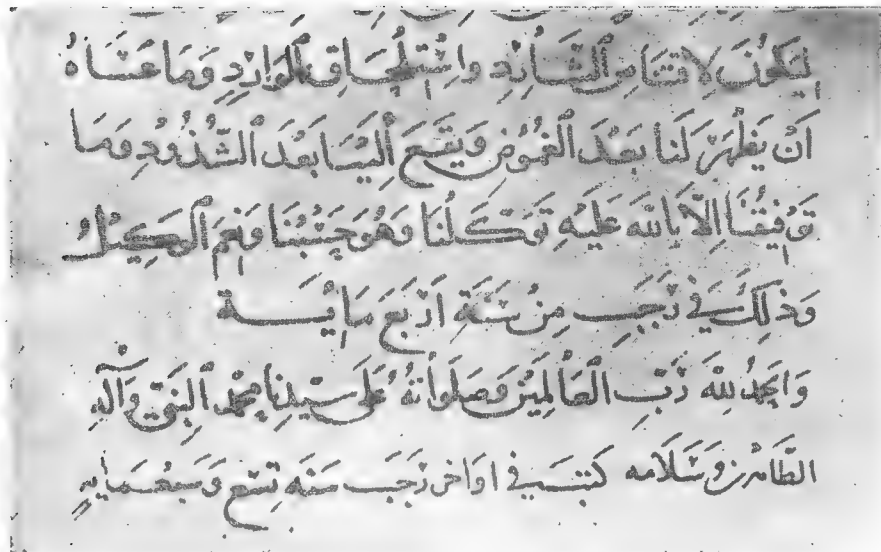 ليكون لاقتناص الشارد واستلحاق الوارد وما عساه
أن يظهر لنا بعد الغموض ويقع إلينا بعد الشذوذ وما
توفيقنا إلا بالله عليه توكلنا وهو حسبنا ونعم الوكيل
وذلك في رجب من سنة أربع مائة
والحمد لله رب العالمين وصلواته على سيدنا محمد النبي وآله
الطاهرين وسلامه كتبت في اواخر رجب سنة تسع وسبعمايه